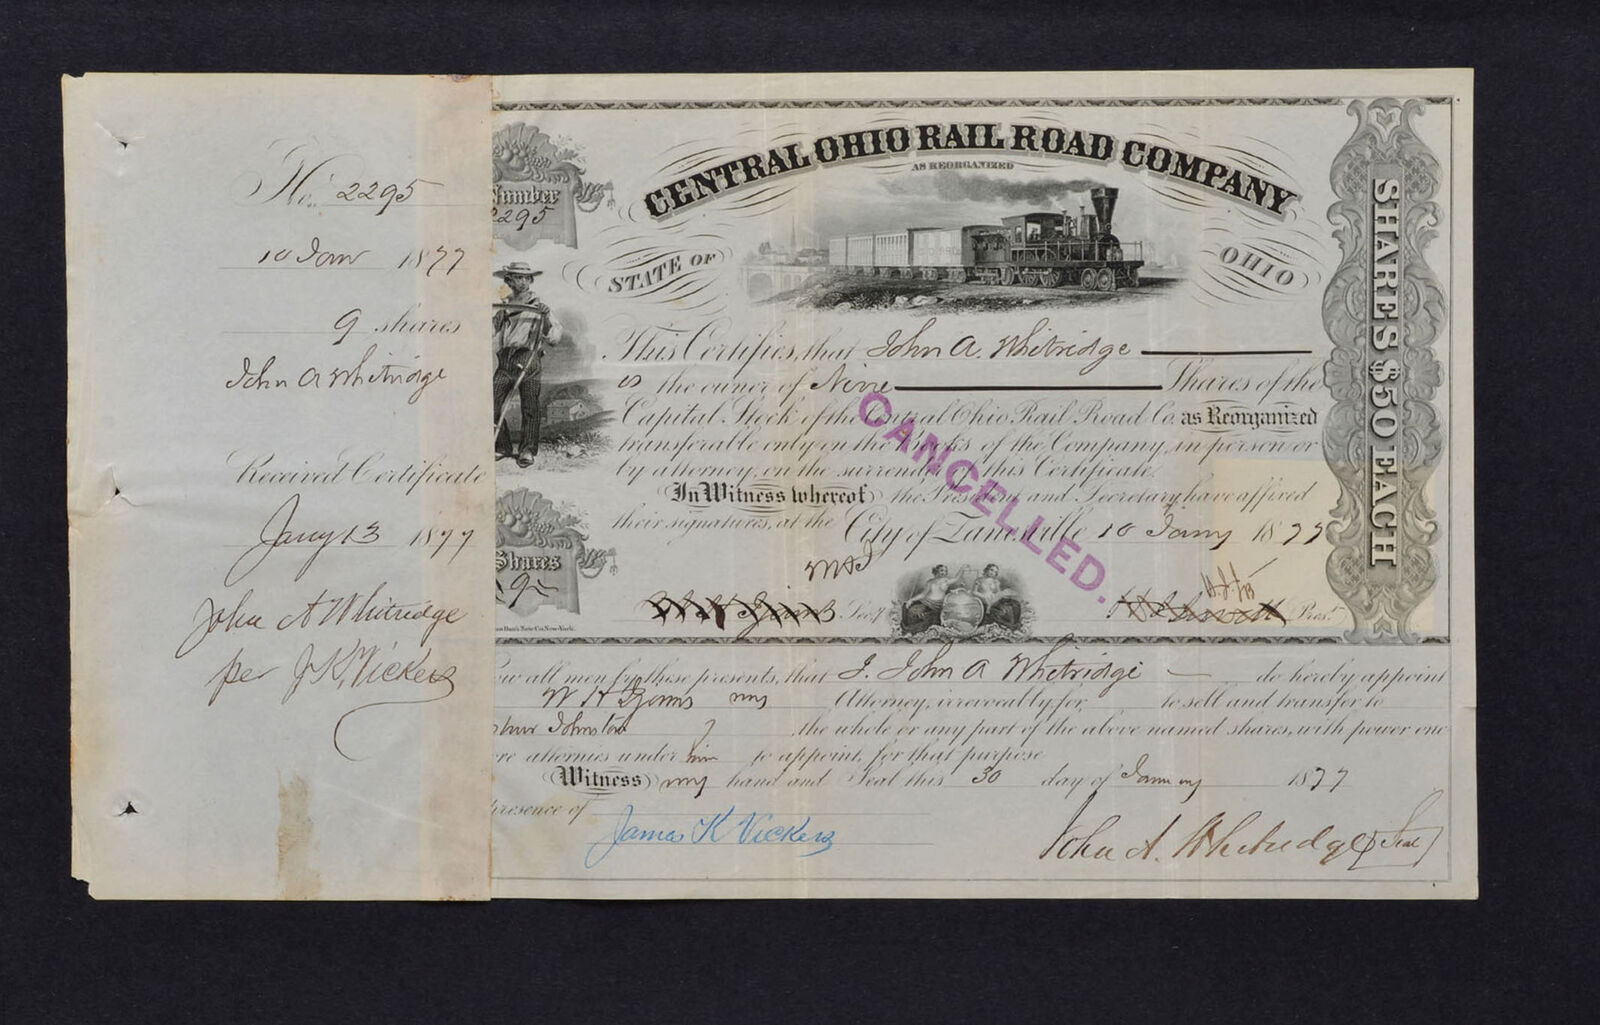 No. 2295
10 Jan 1877
9 shares
John A Whitridge
Received Certificate
Jany 13 1877
John A Whitridge
per J K Vickers
Number
2295
CENTRAL OHIO RAIL ROAD COMPANY
AS REORGANIZED
STATE OF OHIO
This Certifies, that John A. Whitridge
is the owner of Nine Shares of the
Capital Stock of the Central Ohio Rail Road Co. as Reorganized
transferable only on the Books of the Company, in person or
by attorney, on the surrender of this Certificate.
In Witness whereof the President and Secretary have affixed
their signatures, at the City of Zanesville 10 Jany 1877
Shares
9
Secy
Prest.
CANCELLED.
SHARES $50 EACH
ow all men by these presents, that I. John A Whitridge do hereby appoint
W H my Attorney, irrevocably, for to sell and transfer to
Johnston the whole or any part of the above named shares, with power one
re attornies under him to appoint, for that purpose
Witness my hand and Seal this 30 day of January 1877
presence of
James K Vickers
John A. Whitridge (Seal)